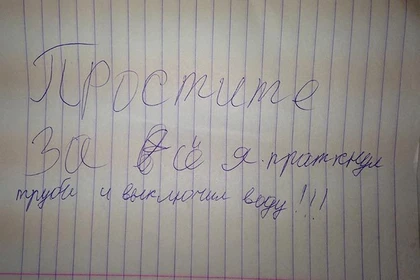 Простите
За всё я праткнул
трубы и выключил воду!!!